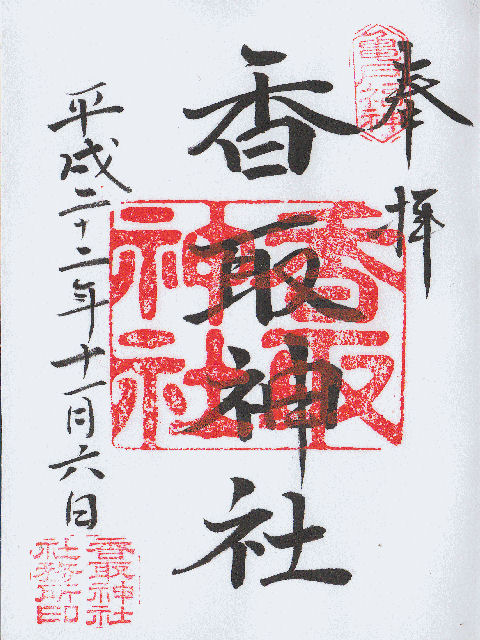 奉拝
香取神社
平成二十二年十一月六日
香取神社
香取神社
社務所印